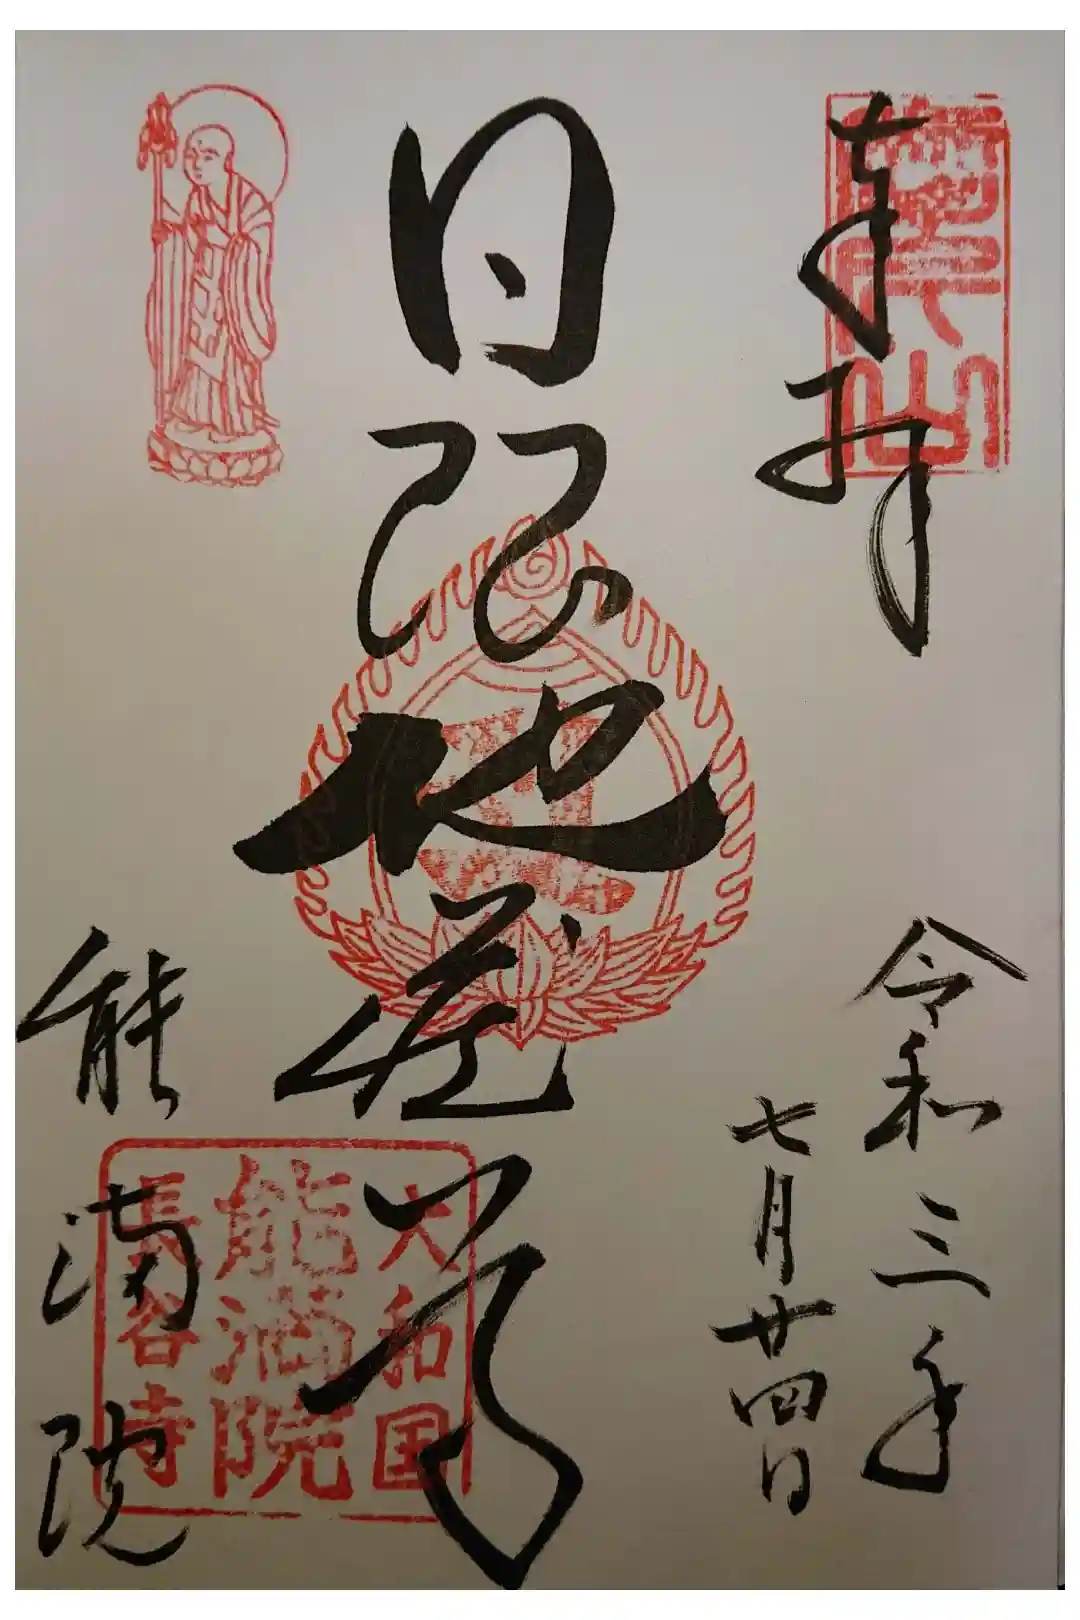 奉拝
令和三年
七月廿四日
日限地蔵尊
大和国
能満院
長谷寺
能満院